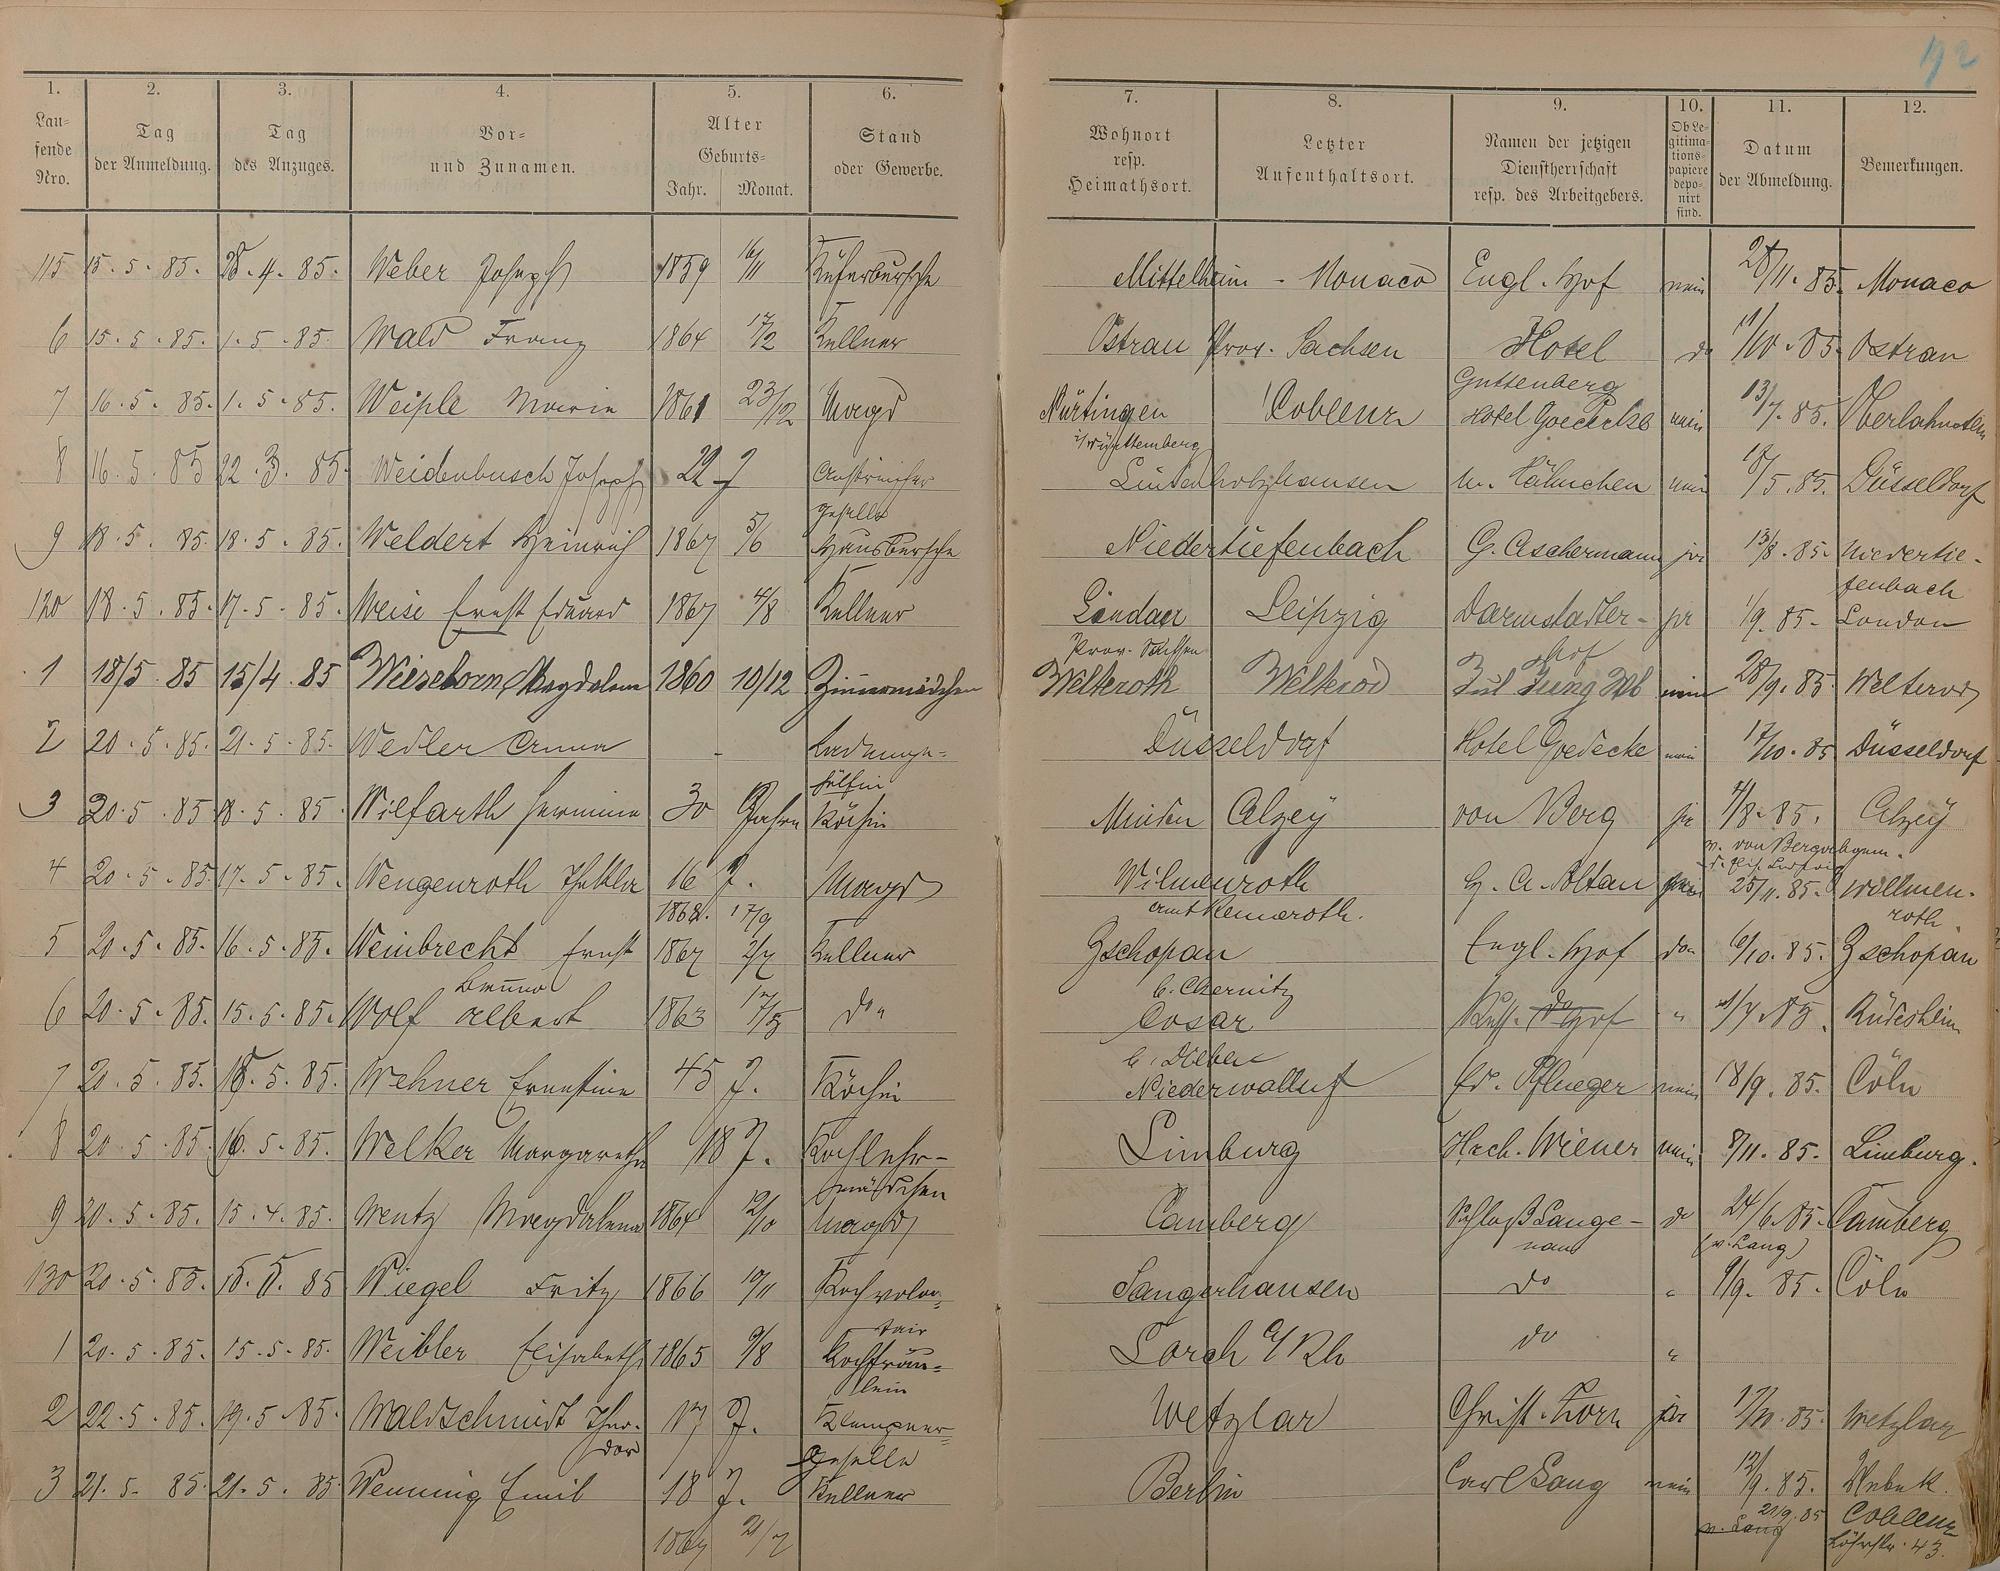 192
1. Laufende Nro.
2. Tag der Anmeldung.
3. Tag des Anzuges.
4. Vor- und Zunamen.
5. Alter Geburts- Jahr. Monat.
6. Stand oder Gewerbe.
7. Wohnort resp. Heimathsort.
8. Letzter Aufenthaltsort.
9. Namen der jetzigen Dienstherrschaft resp. des Arbeitgebers.
10. Ob Legitimationspapiere deponirt sind.
11. Datum der Abmeldung.
12. Bemerkungen.
115 15.5.85. 28.4.85. Weber Joseph 1859 16/11 Küferbursche Mittelheim - Monaco Engl. Hof nein 28/11.85. Monaco
6 15.5.85. 1.5.85. Wald Franz 1864 Kellner Ostrau Prov. Sachsen Hotel do 11/10.85. Ostrau
Guttenberg
7 16.5.85. 1.5.85. Weiple Marie 1861 23/12 Magd Nürtingen Coblenz Hotel Goedecke nein 13/7.85. Oberlahnstein
i/Württemberg
8 16.5.85 22.3.85. Weidenbusch Joseph 22 J Anstreicher Lindenholzhausen W. Hähnchen nein /5.85. Düsseldorf
geselle
9 18.5.85. 18.5.85. Weldert Heinrich 1867 5/6 Hausbursche Niedertiefenbach G. Aschermann ja 13/8.85. Niedertie-
fenbach
120 18.5.85. 17.5.85. Weise Ernst Eduard 1867 4/8 Kellner Leipzig Darmstadter- ja 1/9.85- London
Prov. Sachsen Hof
1 18/5.85 15/4.85 Magdalena 1860 10/12 Zimmermädchen Welteroth Welterod Jung nein 28/9.85. Welterod
2 20.5.85. 21.5.85. Wedler Anna - Düsseldorf Hotel Goedecke nein 17/10.85 Düsseldorf
3 20.5.85 18.5.85. Wilfarth Hermine 30 Jahre Köchin Minden Alzey von Berg ja 4/8.85. Alzey
4 20.5.85. 17.5.85. Wengenroth Thekla 16 J. Magd Wilmenroth 25/11.85. Willmen-
1868. 17/9 Amt roth.
5 20.5.85. 16.5.85. Weinbrecht Ernst 1867 2/7 Kellner Zschopau Engl. Hof do 6/10.85. Zschopau
Bruno b. Chemnitz
6 20.5.85. 15.5.85. Wolf Albert 1863 17/5 do Cosar Russ. Hof " /7.85. Rüdesheim
b. Düben
7 20.5.85. 18.5.85. Wehner Ernestine 45 J. Köchin Niederwalluf Fr. Pflueger nein 18/9.85. Cöln
8 20.5.85. 16.5.85. Welker Margaretha 18 J. Kochlehr- Limburg Hch. Wiener nein 8/11.85. Limburg.
mädchen
9 20.5.85. 15.4.85. Wentz Magdalena 1864 12/10 Magd Camberg Schloß Lange- do 24/6.85. Camberg
nau (v. Lang)
130 20.5.85. 15.5.85 Wiegel Fritz 1866 10/11 Kochvolon- Sangerhausen do " 9/9.85. Cöln
tair
1 20.5.85. 15.5.85. Weibler Elisabeth 1865 9/8 Kochfräu- Lorch a/Rh do "
lein
2 22.5.85. 19.5.85. Waldschmidt Theo- 17 J. Klempner- Wetzlar Christ. Korn ja 17/10.85. Wetzlar
dor Geselle
3 21.5.85. 21.5.85. Wenning Emil 18 J. Kellner Berlin Carl Lang nein 12/9.85.
1867 21/7 v. Lang 21/9.85 Coblenz
Löhrstr. 43.